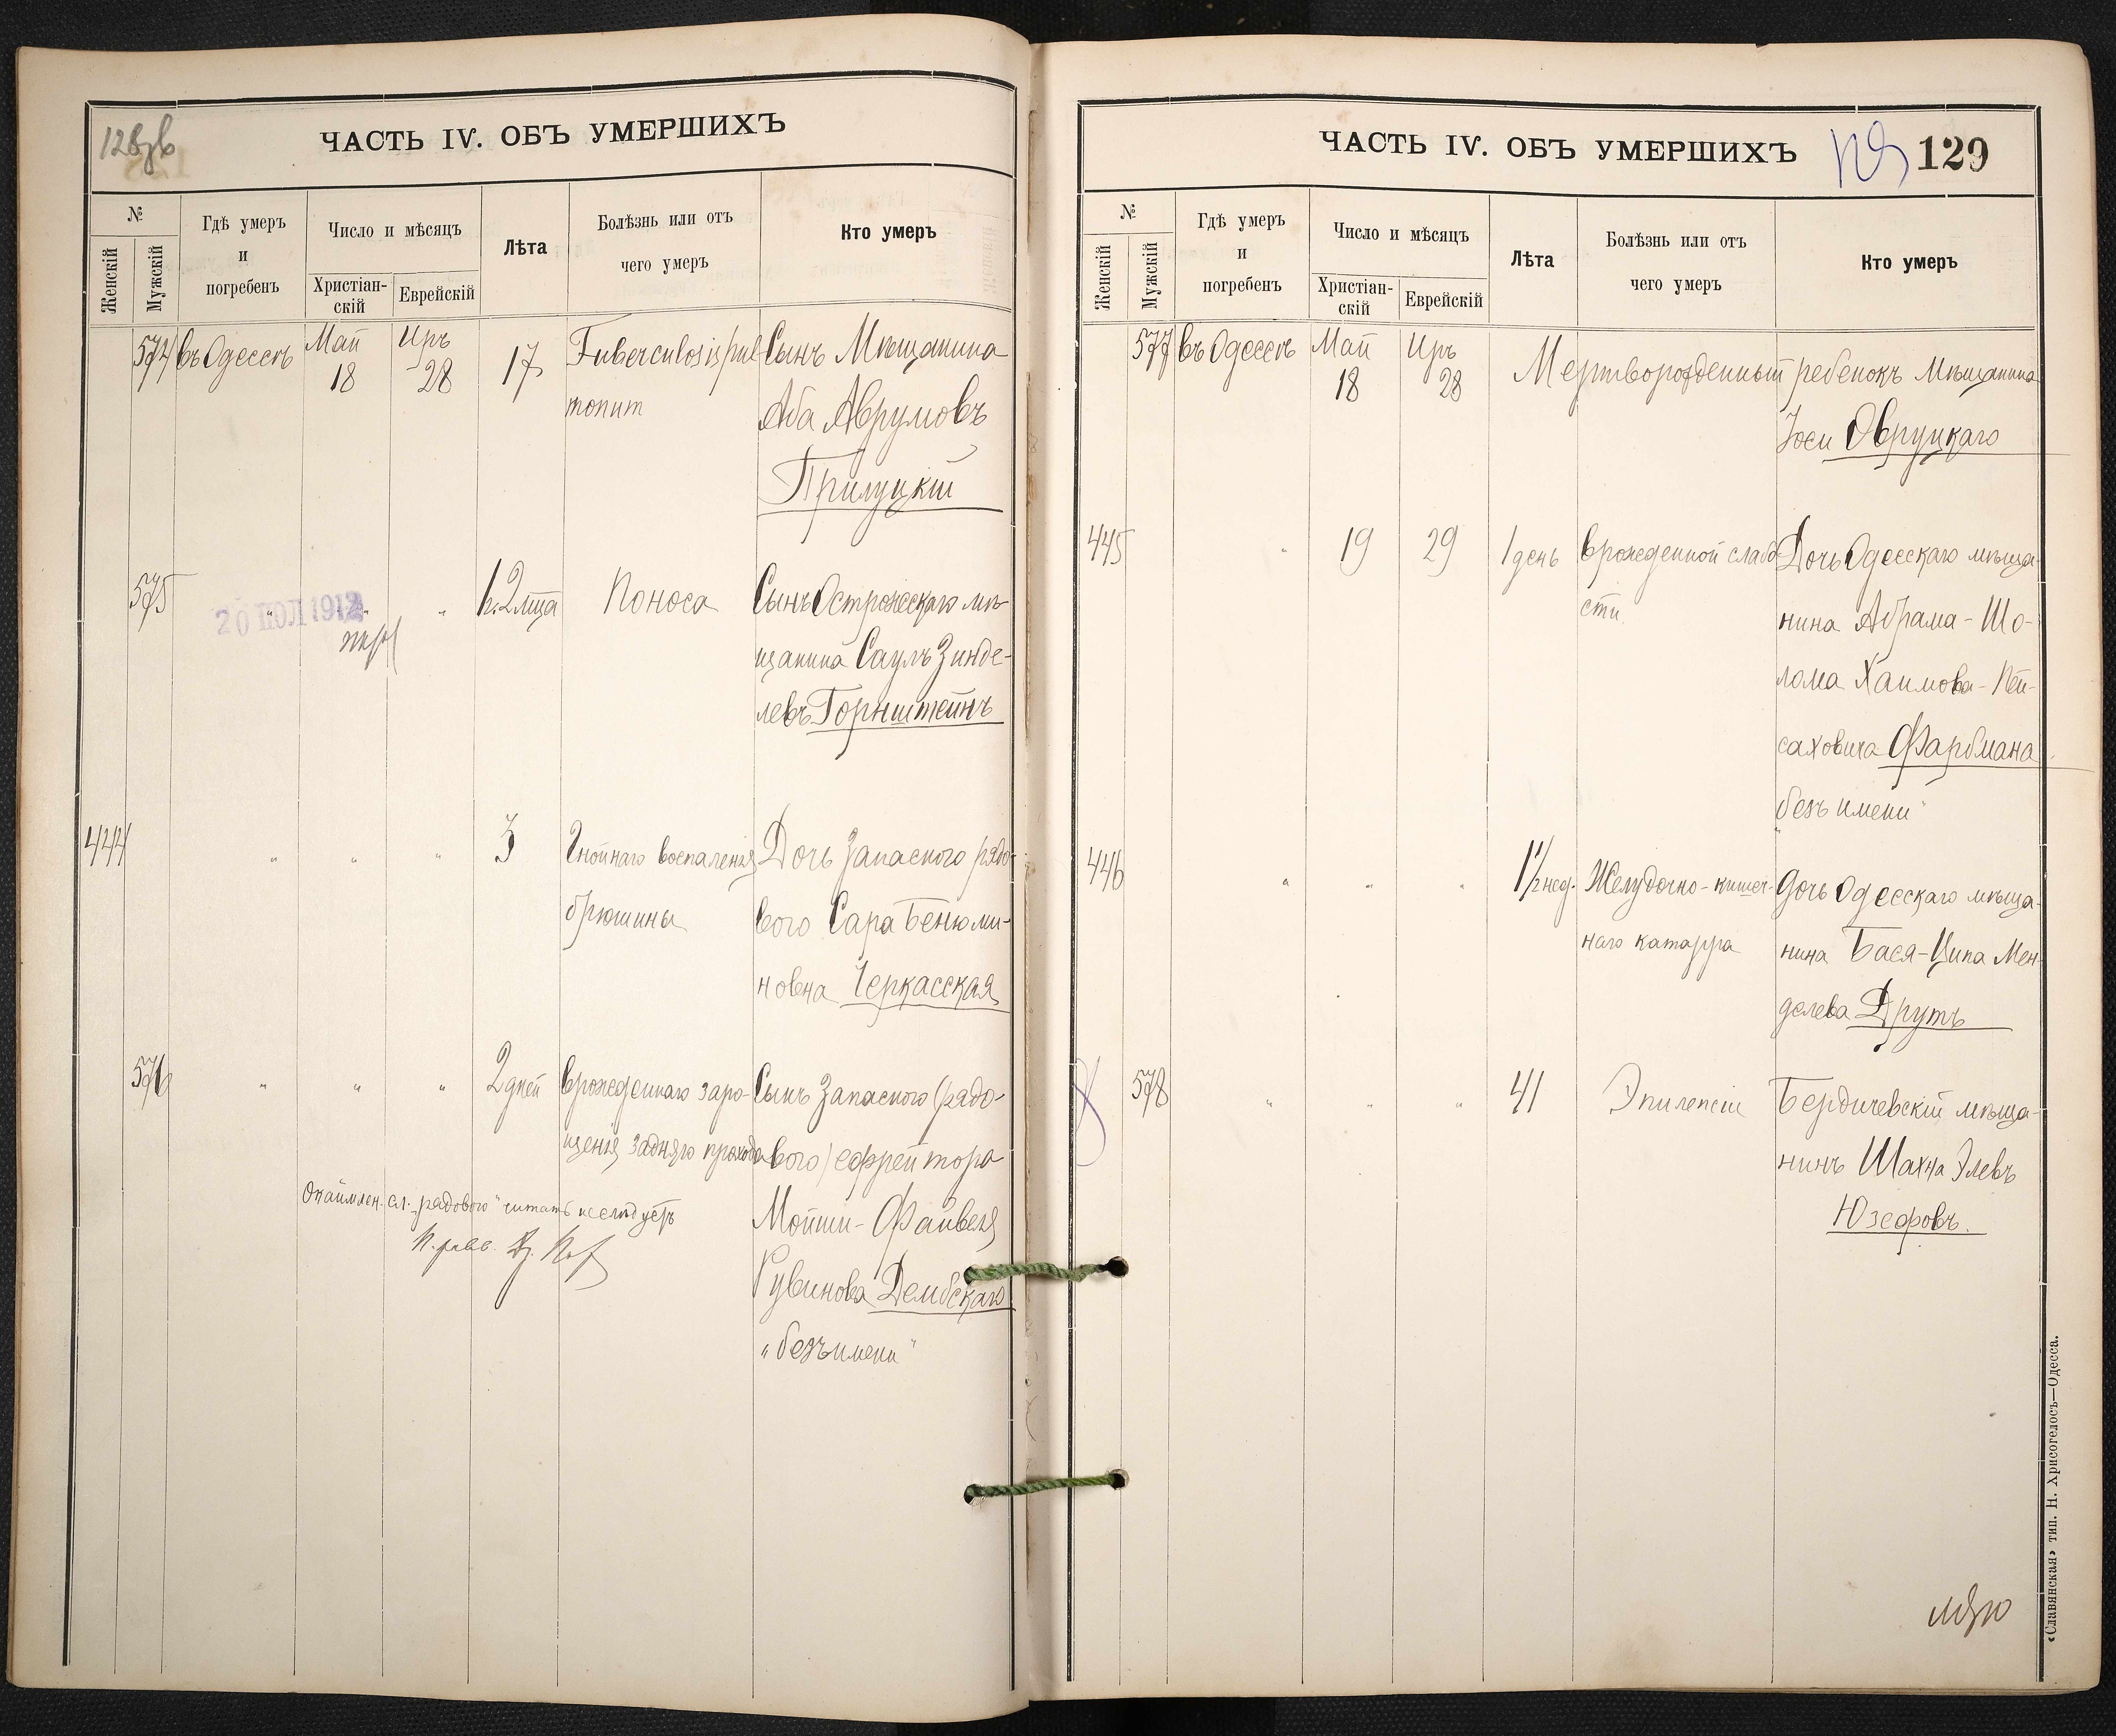 128 зв
ЧАСТЬ IV. ОБЪ УМЕРШИХЪ
№
Женскій
Мужскій
Гдѣ умеръ
и
погребенъ
Число и мѣсяцъ
Христіан-
скій
Еврейскій
Лѣта
Болѣзнь или отъ
чего умеръ
Кто умеръ
574 въ Одессѣ Май 18 Иръ 28 17 Tuberculosis pul Сынъ Мѣщанина
Аба Аврумовъ
Прилуцкій
575 " " " 1г. 2 мца Поноса Сынъ Острожскаго мѣ-
20 ІЮЛ 1912
щанина Саулъ Зинде-
левъ Горнштейнъ
444 " " " 3 Гнойнаго воспаленія Дочь Запаснаго рядо-
брюшины вого Сара Бенюми-
новна Черкасская
576 " " " 2 дней Врожденнаго заро- Сынъ Запаснаго (рядо-
щенія задняго прохода вого) ефрейтора
Окаймлен. сл. „рядового" читать не слѣдуетъ
Мойши-Файвеля
Рувинова Дембскаго
„безъ имени"
129
ЧАСТЬ IV. ОБЪ УМЕРШИХЪ 129
№
Женскій
Мужскій
Гдѣ умеръ
и
погребенъ
Число и мѣсяцъ
Христіан-
скій
Еврейскій
Лѣта
Болѣзнь или отъ
чего умеръ
Кто умеръ
577 въ Одессѣ Май 18 Иръ 28 Мертворожденный ребенокъ Мѣщанина
Іоси Овруцкаго
445 " 19 29 1 день Врожденной слабо- Дочь Одесскаго мѣща-
сти нина Абрама-Шо-
лома Хаимова-Пей-
саховича Фарбмана
„безъ имени"
446 " " " 1½ нед. Желудочно-кишеч- Дочь Одесскаго мѣща-
наго катарра нина Бася-Ципа Мен-
делева Друтъ
578 " " " 41 Эпилепсіи Бердичевскій мѣща-
нинъ Шахна Элевъ
Юзефовъ.
«Славянская» тип. Н. Хрисогелосъ—Одесса.